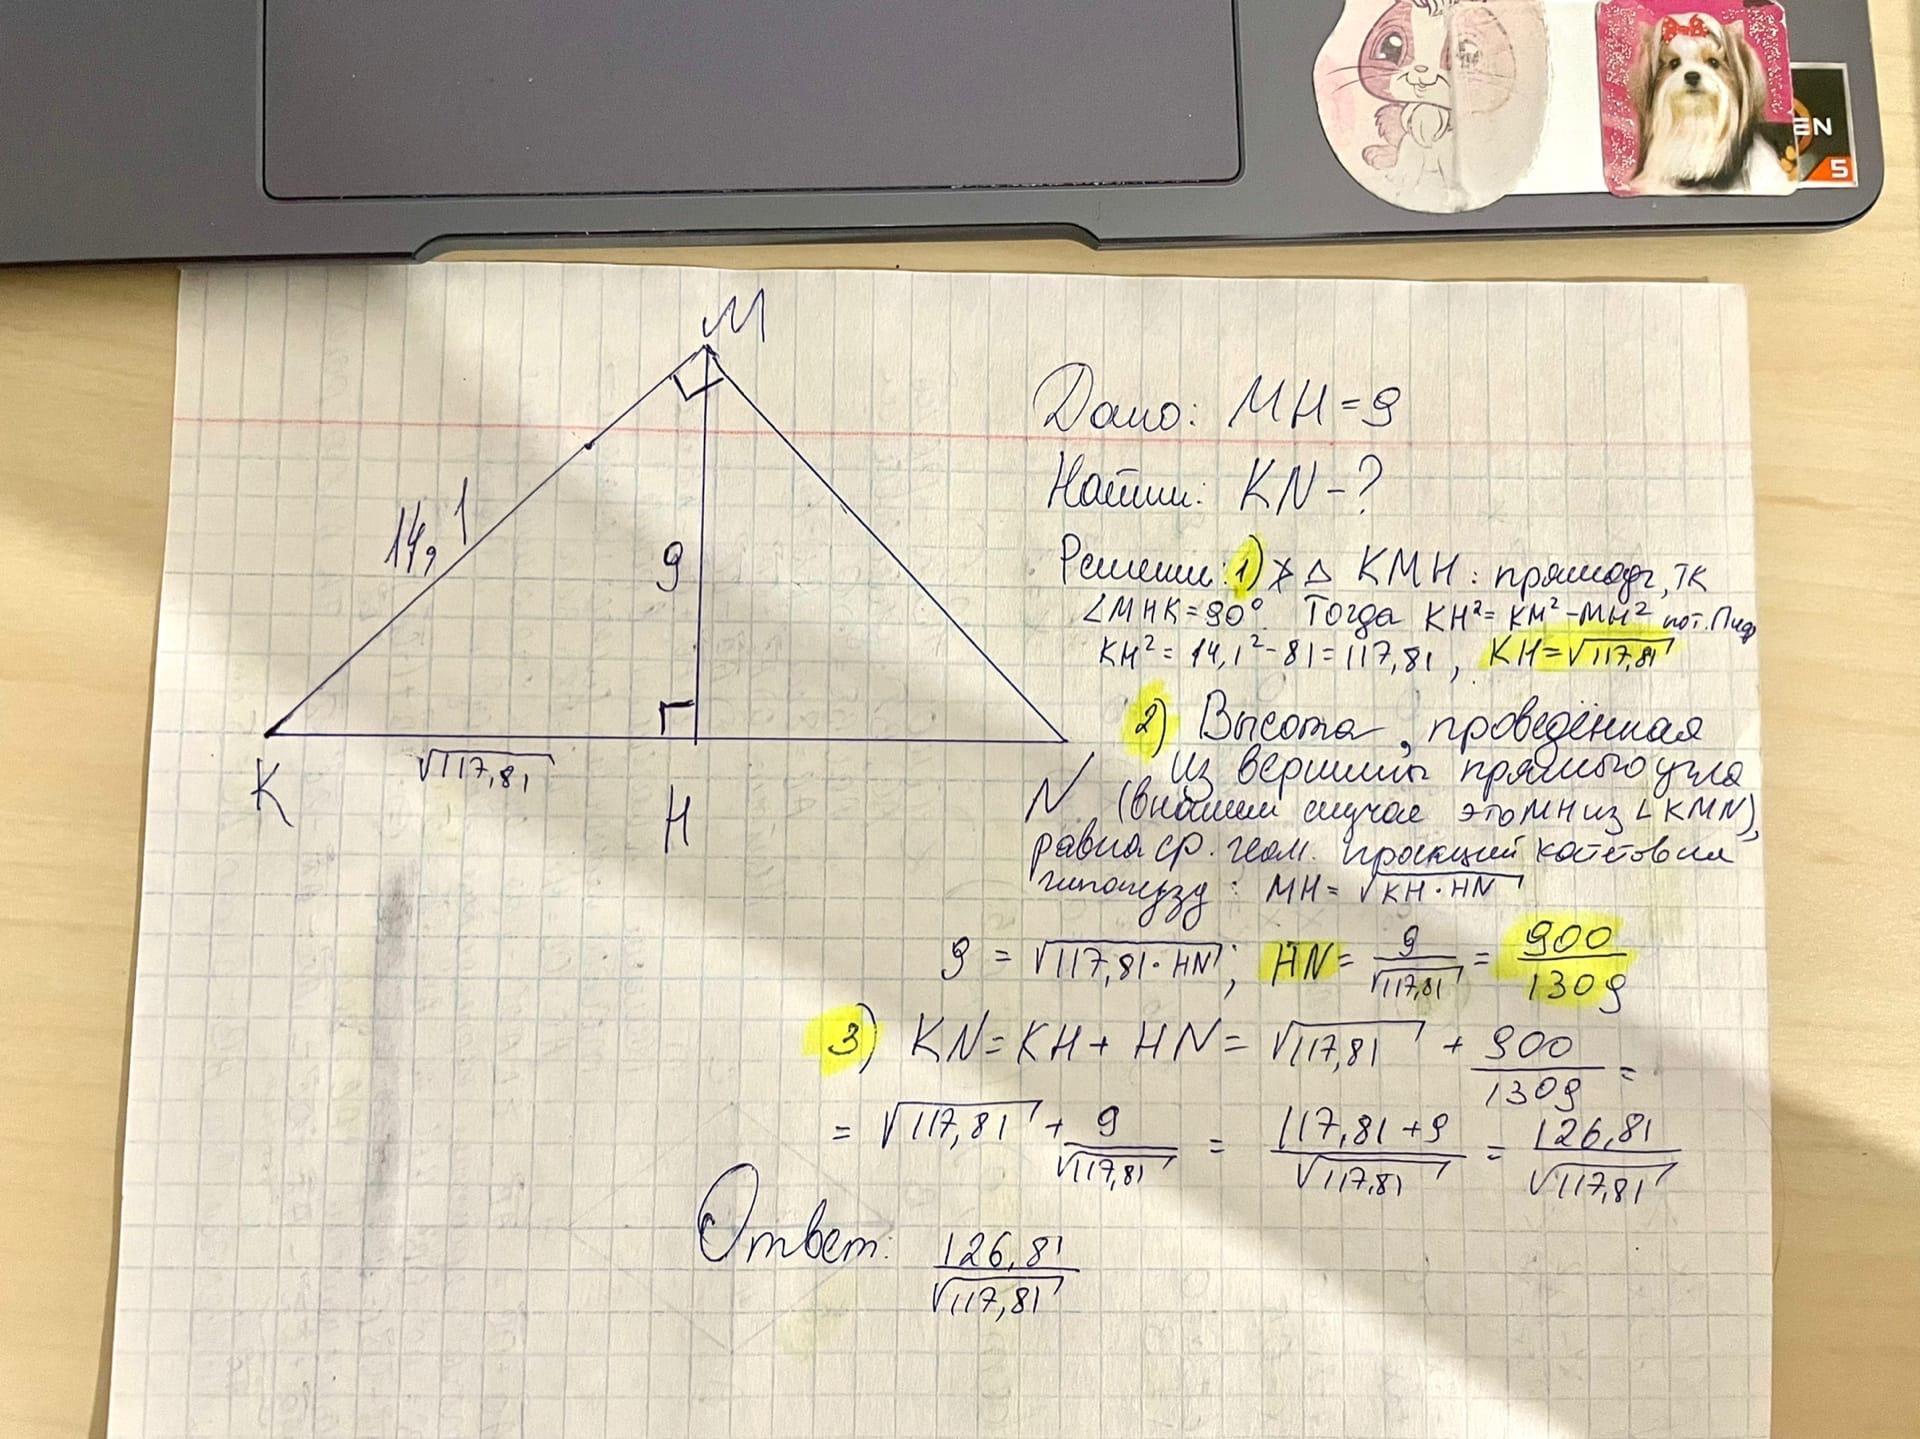 EN
5
M
14,1
9
√117,81
K
H
N
Дано: MH = 9
Найти: KN - ?
Решени: 1) △ KMH: прямоуг, тк
∠MHK = 90° Тогда KH² = KM² - MH² по т. Пиф
KH² = 14,1² - 81 = 117,81, KH = √117,81
2) Высота, проведённая
из вершины прямого угла
(в нашем случае это MH из ∠KMN),
равна ср. геом. проекций катетов на
гипотенузу: MH = √KH · HN
9 = √117,81 · HN; HN = 9/√117,81 = 900/1309
3) KN = KH + HN = √117,81 + 900/1309 =
= √117,81 + 9/√117,81 = 117,81 + 9/√117,81 = 126,81/√117,81
Ответ: 126,81/√117,81